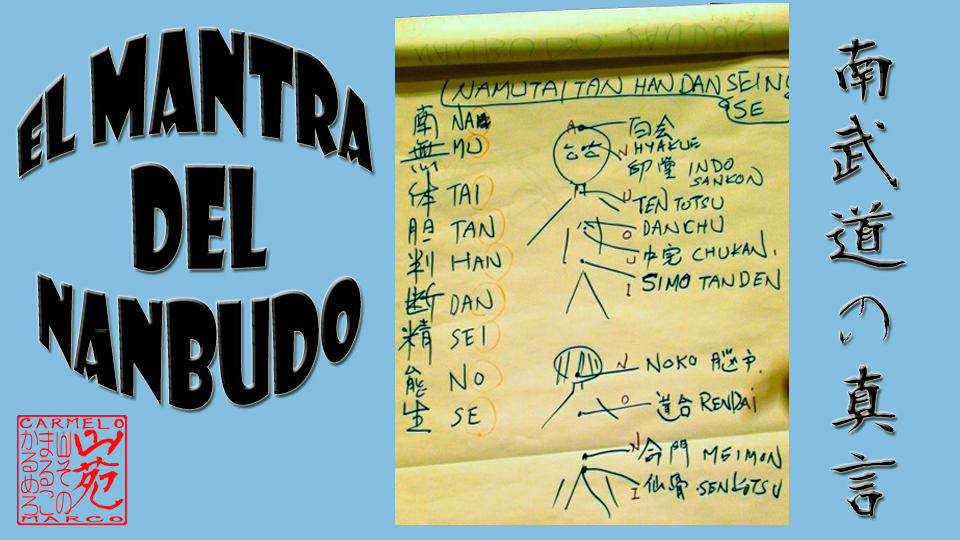 EL MANTRA
DEL
NANBUDO
CARMELO
山苑
山その
まるこ
かるめろ
MARCO
NAMUTAITAN HANDAN SEINO
SE
南 NA
無 MU
体 TAI
胆 TAN
判 HAN
断 DAN
精 SEI
能 NO
生 SE
A
百会
HYAKUE
N
印堂 INDO
SANKON
U
TENTOTSU
O
DANCHU
U
CHUKAN.
I
SIMO TANDEN
N
NOKO
O
RENDAI
N
命門 MEIMON
I
仙骨 SENKOTSU
南武道の真言